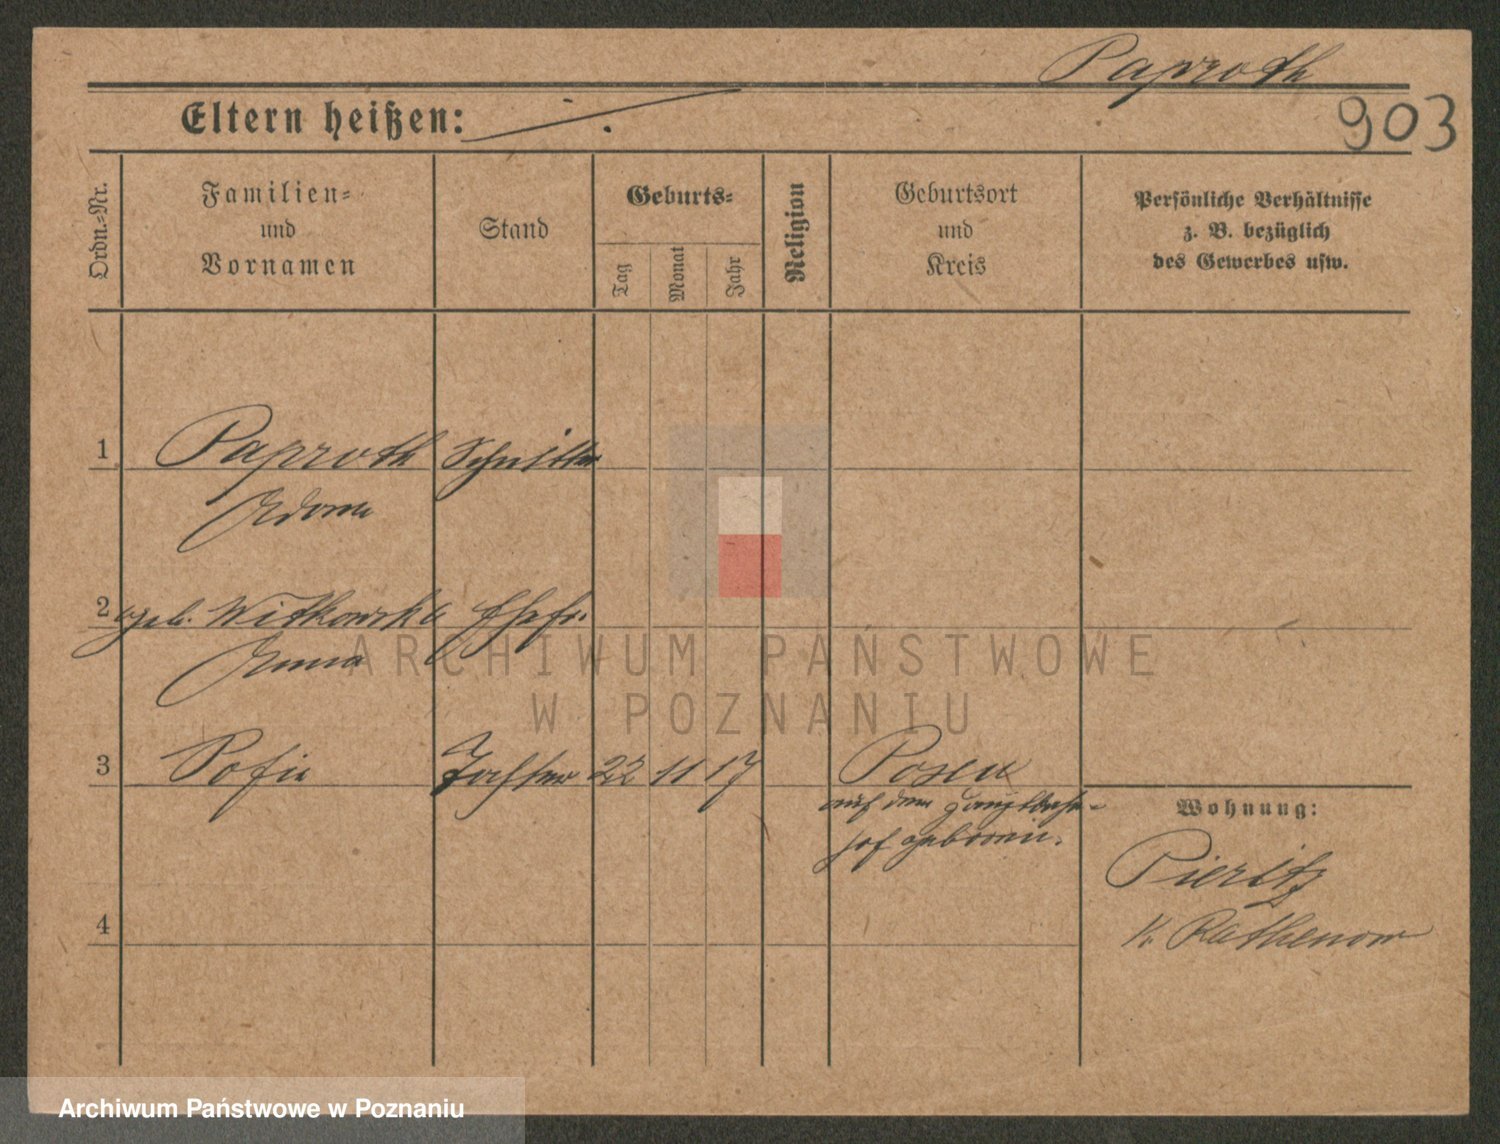 Paproth
903
Eltern heißen:
Ordn.=Nr.
Familien=
und
Vornamen
Stand
Geburts=
Tag
Monat
Jahr
Religion
Geburtsort
und
Kreis
Persönliche Verhältnisse
z. B. bezüglich
des Gewerbes usw.
1 Paproth Schnitter
Adam
2 geb. Witkowska Ehefr.
Anna
3 Sofie Tochter 22 11 17 Posen
auf dem Hauptbahn-
hof geboren.
Wohnung:
Pieritz
K. Rathenow
4
ARCHIWUM PAŃSTWOWE
W POZNANIU
Archiwum Państwowe w Poznaniu